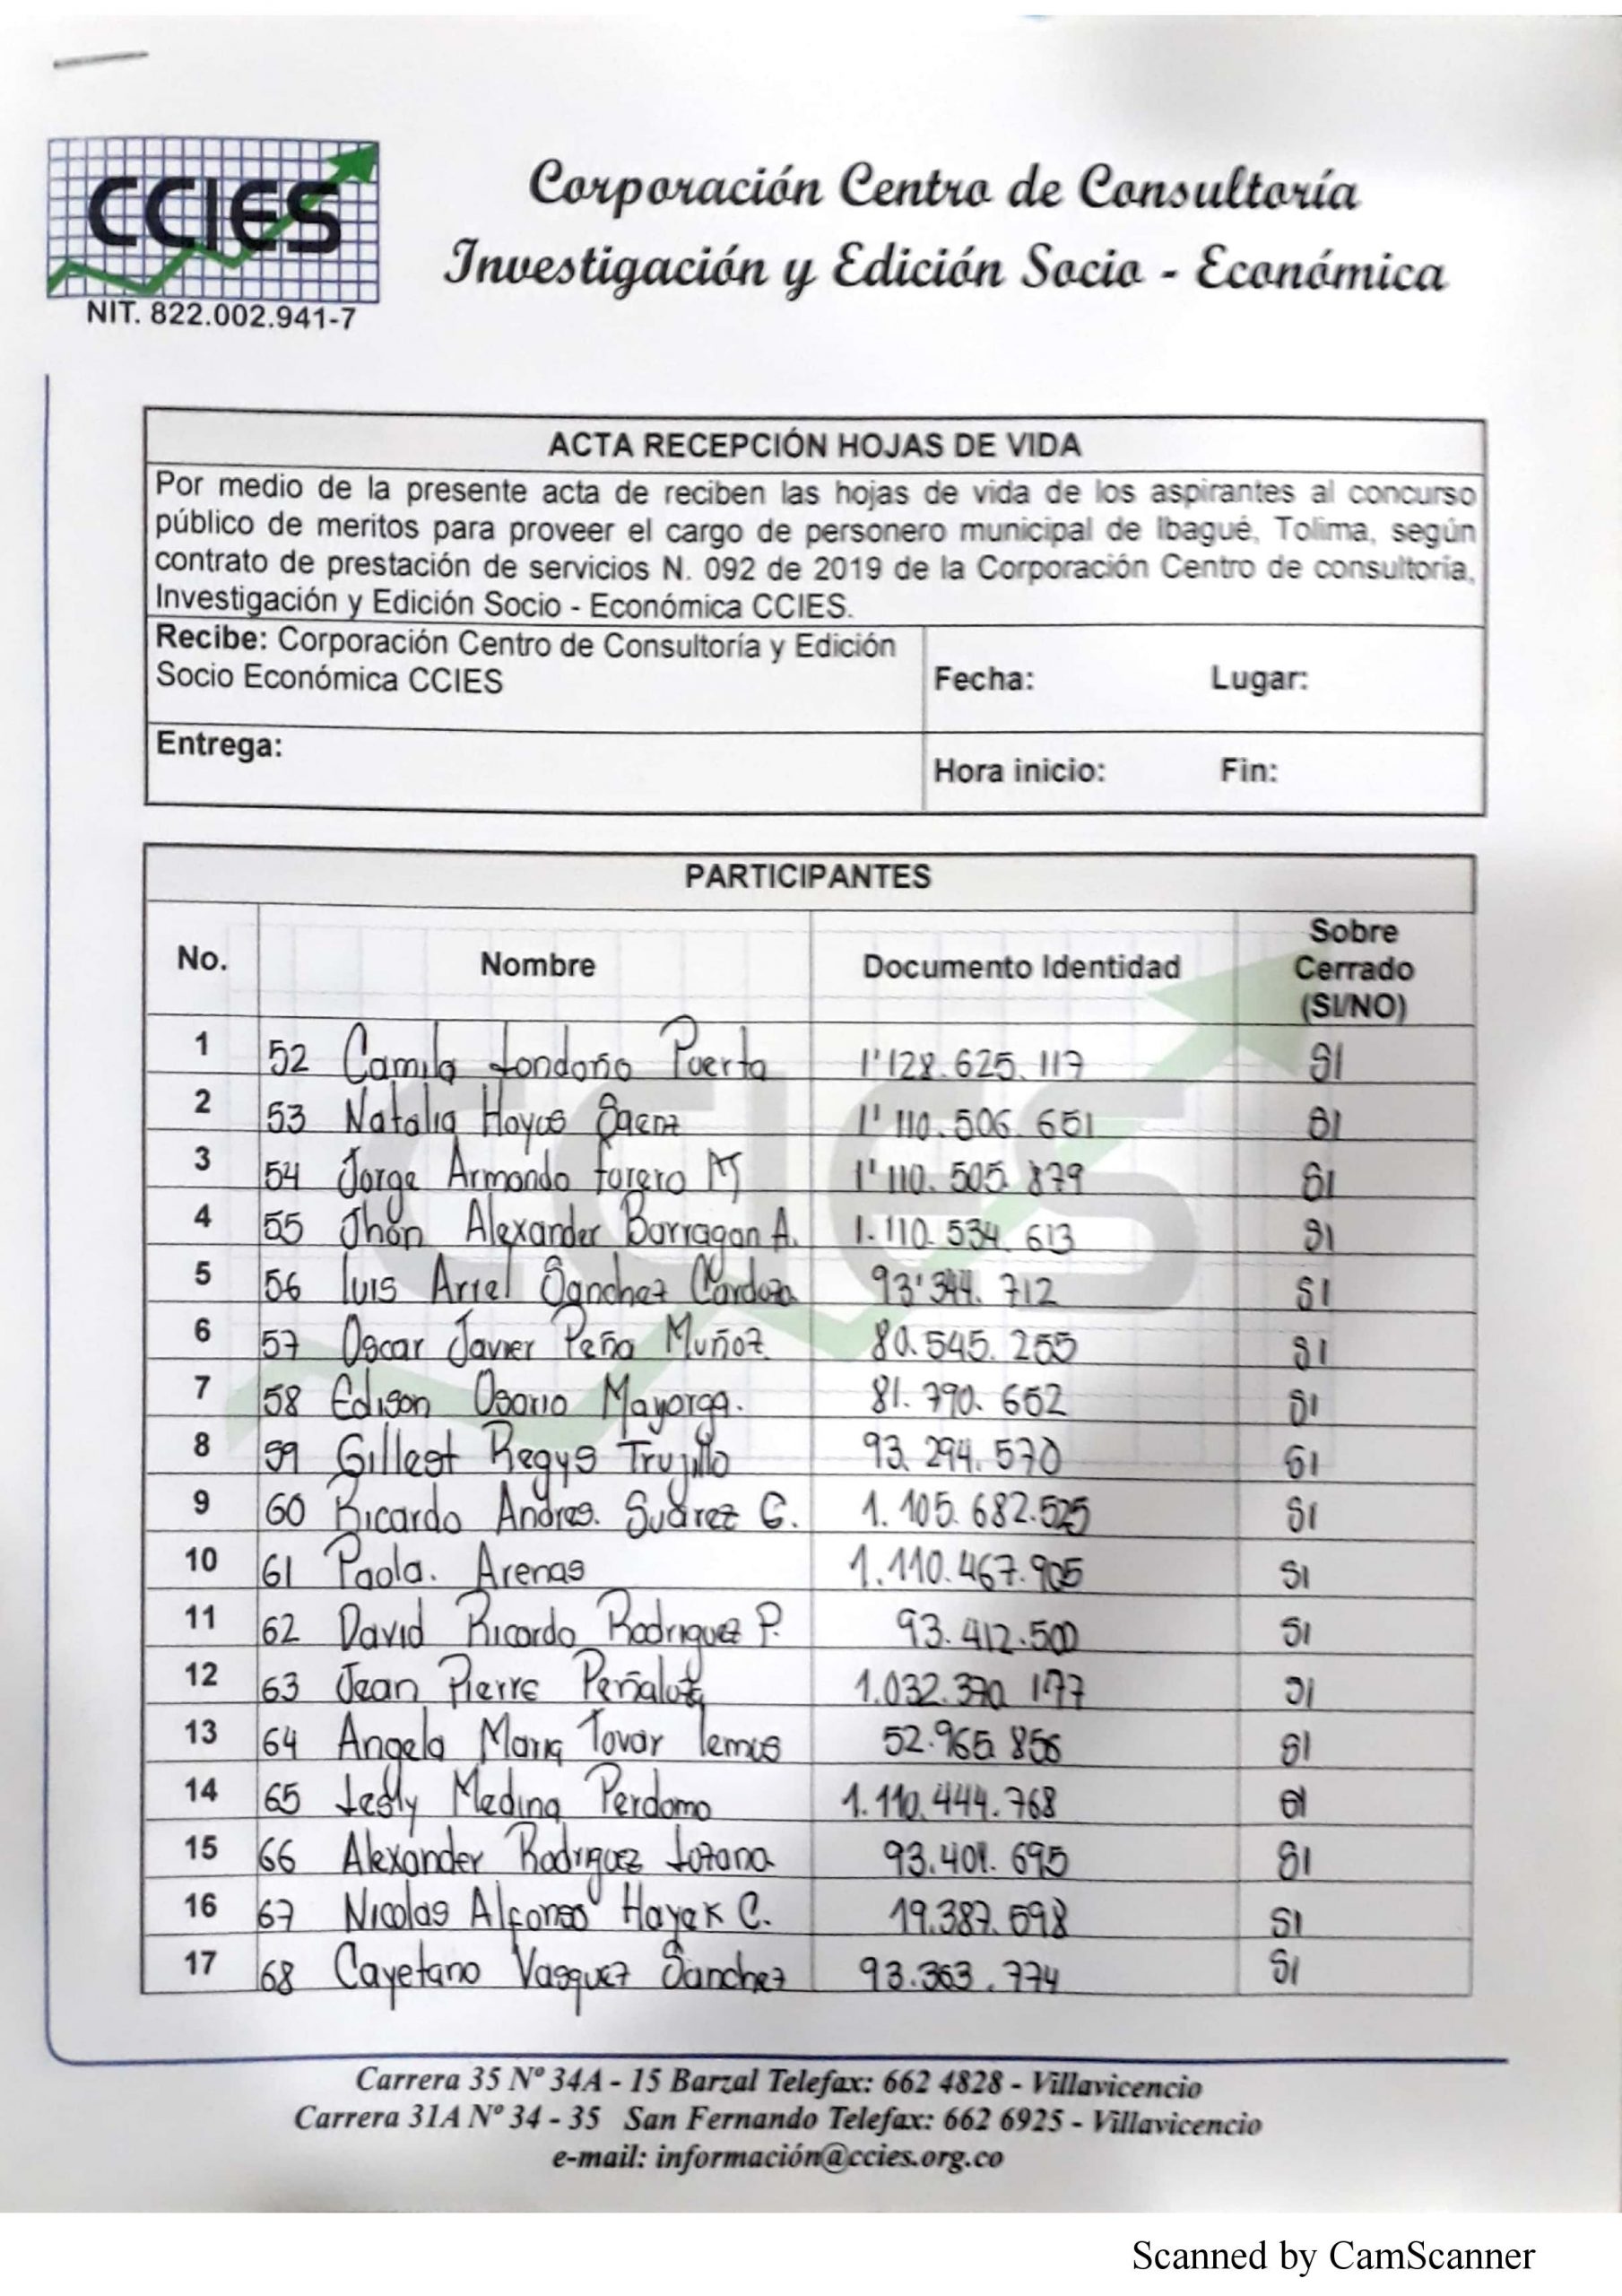 CCIES
NIT. 822.002.941-7
Corporación Centro de Consultoría
Investigación y Edición Socio - Económica
ACTA RECEPCIÓN HOJAS DE VIDA
Por medio de la presente acta de reciben las hojas de vida de los aspirantes al concurso
público de meritos para proveer el cargo de personero municipal de Ibagué, Tolima, según
contrato de prestación de servicios N. 092 de 2019 de la Corporación Centro de consultoría,
Investigación y Edición Socio - Económica CCIES.
Recibe: Corporación Centro de Consultoría y Edición
Socio Económica CCIES
Fecha: Lugar:
Entrega:
Hora inicio: Fin:
PARTICIPANTES
No. Nombre Documento Identidad Sobre Cerrado (SI/NO)
1 52 Camila Londoño Puerta 1'128.625.117 SI
2 53 Natalia Hoyos Saenz 1'110.506.651 SI
3 54 Jorge Armando Forero M 1'110.505.879 SI
4 55 Jhon Alexander Barragan A. 1.110.534.613 SI
5 56 Luis Ariel Sanchez Cardozo 93'344.712 SI
6 57 Oscar Javier Peña Muñoz 80.545.255 SI
7 58 Edison Osorio Mayorga. 81.790.652 SI
8 59 Gillest Regys Trujillo 93.294.570 SI
9 60 Ricardo Andres. Suárez G. 1.105.682.525 SI
10 61 Paola. Arenas 1.110.467.905 SI
11 62 David Ricardo Rodriguez P. 93.412.500 SI
12 63 Jean Pierre Peñaloza 1.032.390.177 SI
13 64 Angela Maria Tovar Lemus 52.965.856 SI
14 65 Lesly Medina Perdomo 1.110.444.768 SI
15 66 Alexander Rodriguez Lozano 93.401.695 SI
16 67 Nicolas Alfonso Hayek C. 19.387.598 SI
17 68 Cayetano Vasquez Sanchez 93.363.774 SI
Carrera 35 Nº 34A - 15 Barzal Telefax: 662 4828 - Villavicencio
Carrera 31A Nº 34 - 35 San Fernando Telefax: 662 6925 - Villavicencio
e-mail: información@ccies.org.co
Scanned by CamScanner